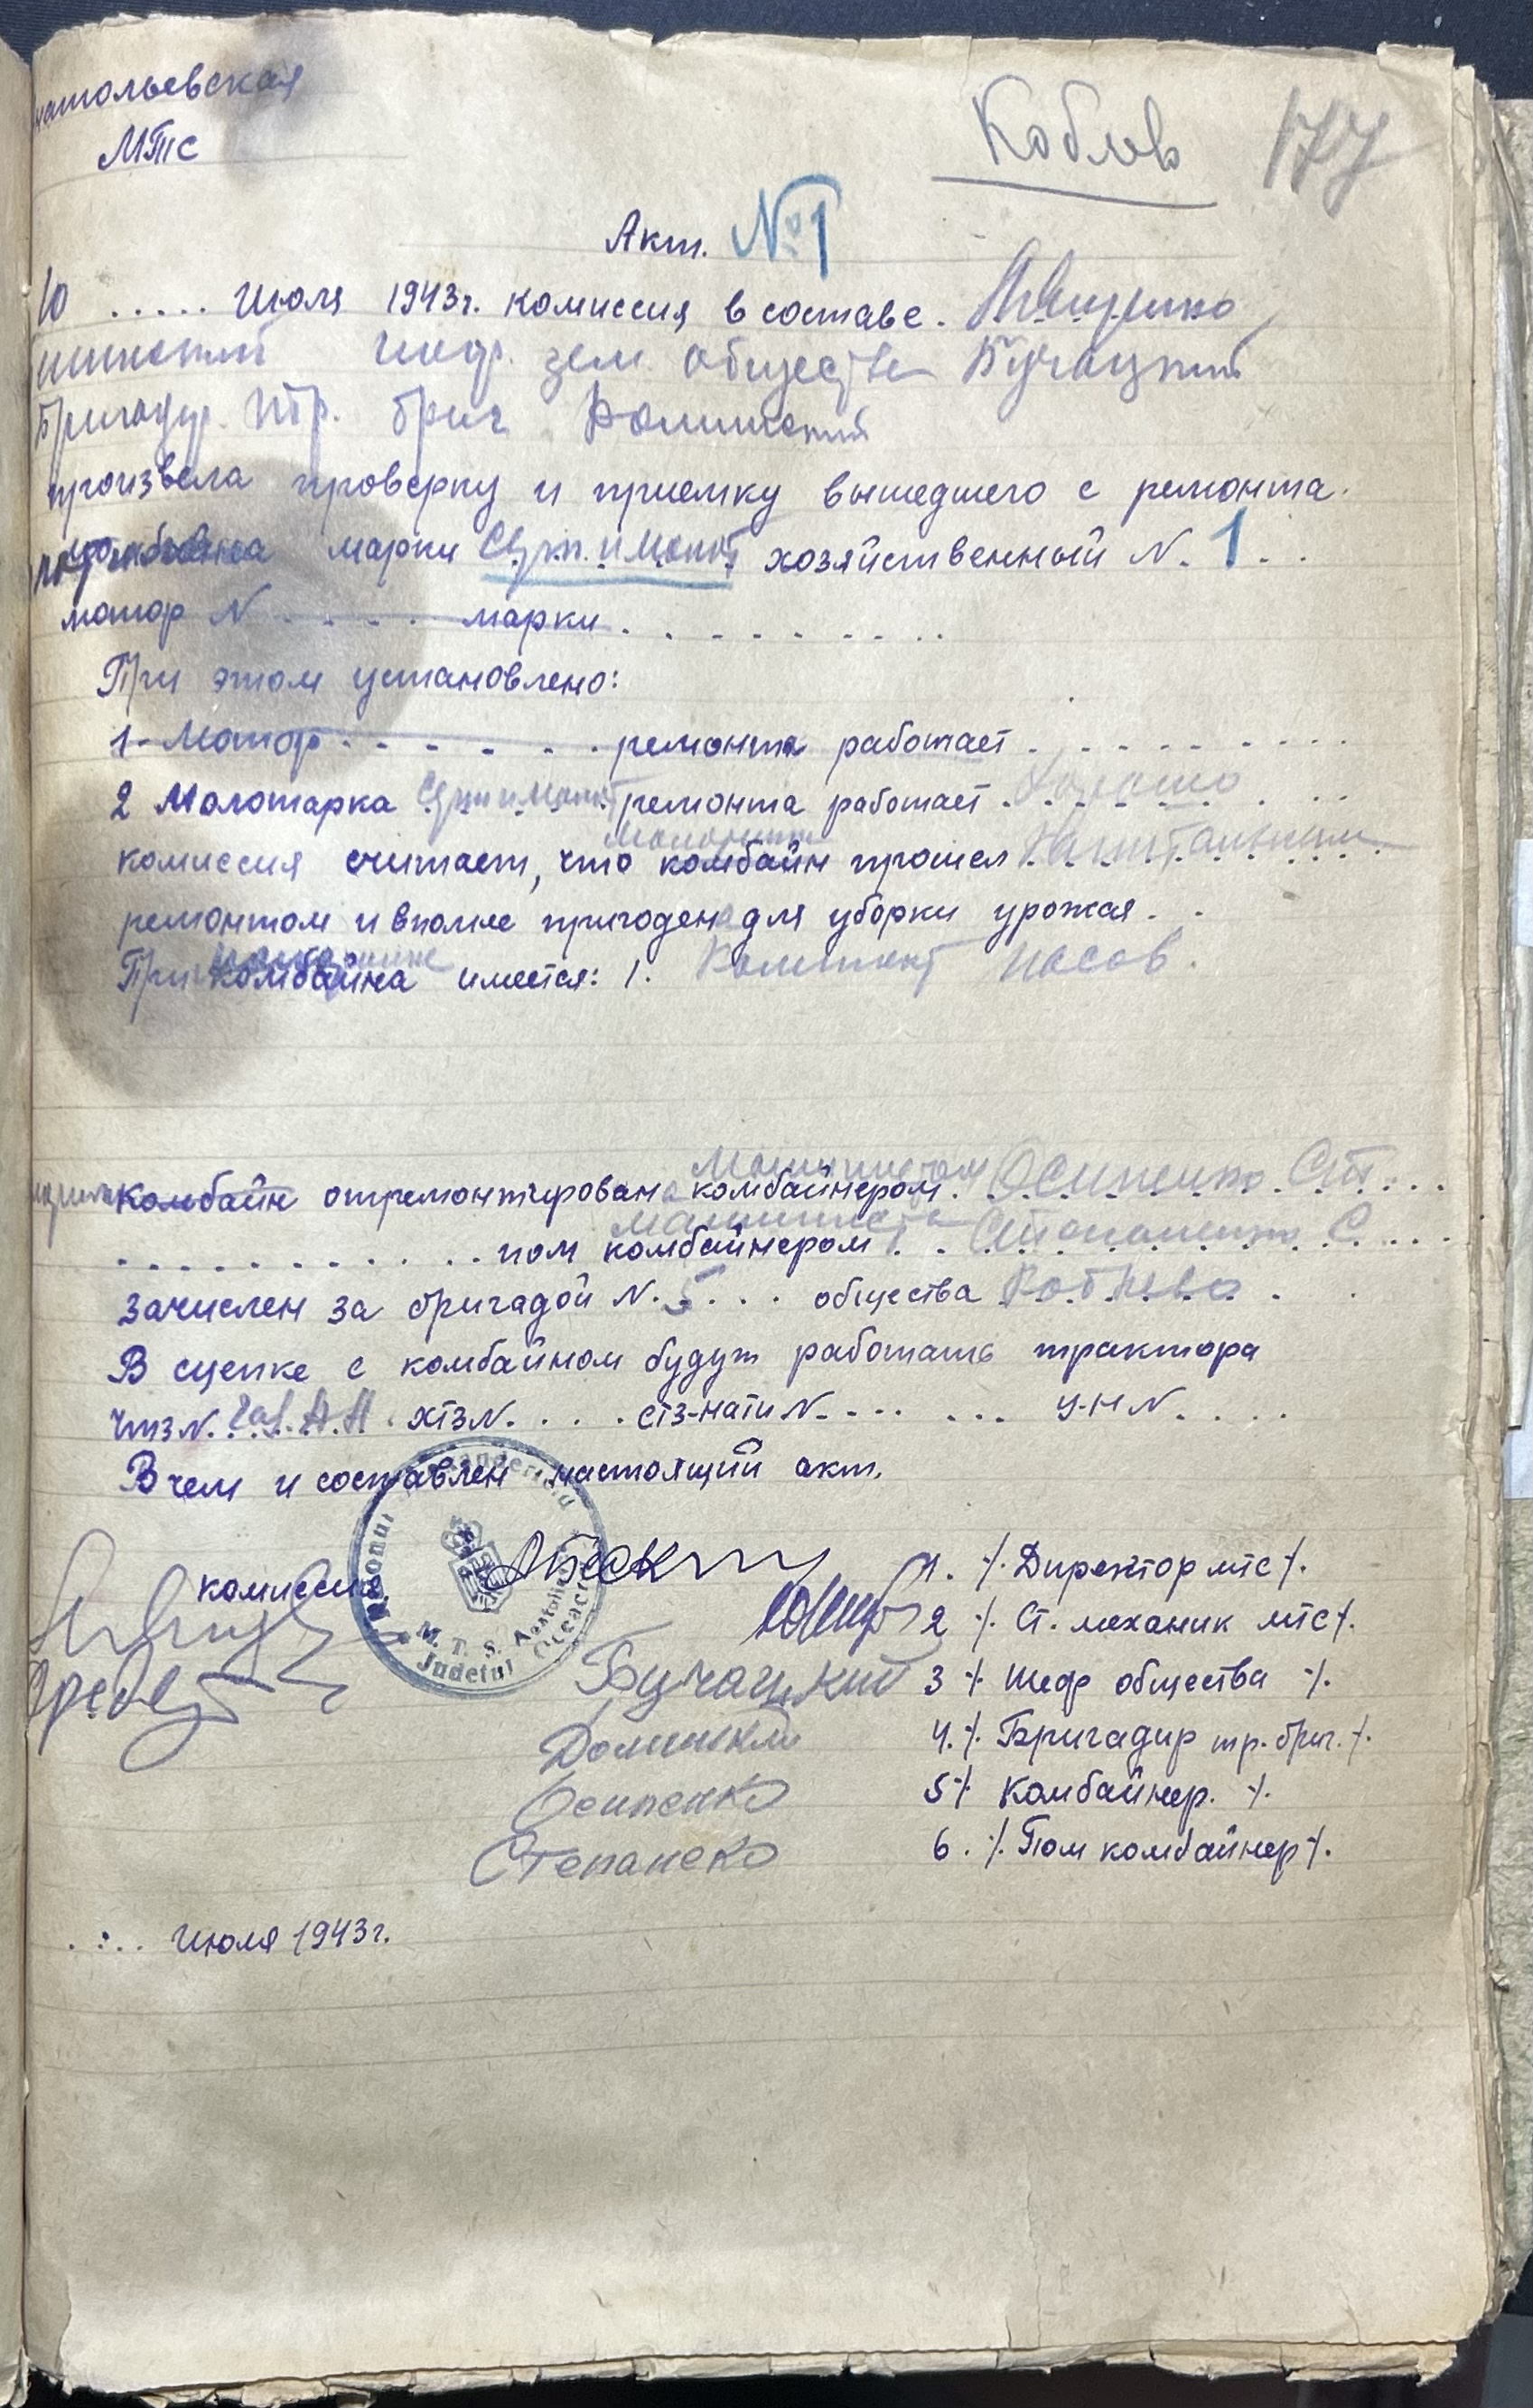 натольевская
МТС
Коблев 177
Акт. №1
10 ..... Июля 1943г. комиссия в составе. Иващенко
шеф. зем. общества Бучацкий
Бригадир тр. бриг Долинский
произвела проверку и приемку вышедшего с ремонта.
марки Серп и Молот хозяйственный N. 1 . .
мотор N . . . . . марки . . . . . . . . .
При этом установлено:
1. Мотор . . . . . . . ремонта работает . . . . . . . . .
2 Молотарка Серп и Молот ремонта работает . Хорошо . . .
молотилка
комиссия считает, что комбайн прошел Капитальным
ремонтом и вполне пригодена для уборки урожая . .
При комбайна имеется: 1. Комплект пасов.
Машинистом
комбайн отремонтирована комбайнером. Осипенко Ст. . . .
Машиниста
. . . . . . . . . . . пом комбайнером . . Степаненко С. . . .
зачислен за бригадой N. 5 . . . общества Коблево .
В сцепке с комбайном будут работать трактора
чтз N. . . . . ХТЗ N. . . . . СТЗ-нати N. . . . . . . . У-Н N. . . . .
В чем и составлен настоящий акт.
комиссия
1. ·/· Директор мтс ·/·
2 ·/· Ст. механик мтс ·/·
Бучацкий 3 ·/· Шеф общества ·/·
Долинский 4. ·/· Бригадир тр. бриг. ·/·
Осипенко 5 ·/· Комбайнер. ·/·
Степанеко 6. ·/· Пом комбайнер ·/·
M. T. S.
Judetul Oceacov
. : . . Июля 1943г.